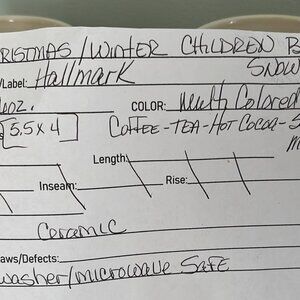 RISTMAS/WINTER CHILDREN
SNOW
/Label: Hallmark
oz. COLOR: Multi Colored
5.5 x 4 COFFEE-TEA-HOT COCOA-S
Length
Inseam: Rise:
Ceramic
aws/Defects:
washer/microwave SAFE